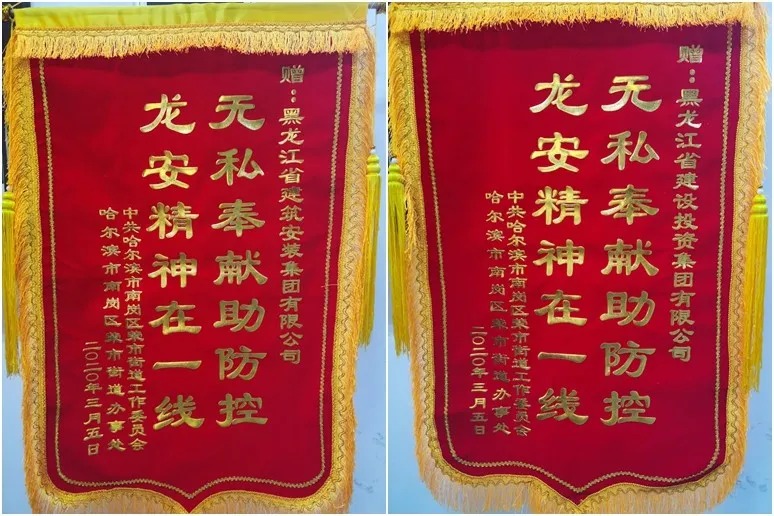 赠：黑龙江省建筑安装集团有限公司
无私奉献助防控
龙安精神在一线
中共哈尔滨市南岗区荣市街道工作委员会
哈尔滨市南岗区荣市街道办事处
二〇二〇年三月五日
赠：黑龙江省建设投资集团有限公司
无私奉献助防控
龙安精神在一线
中共哈尔滨市南岗区荣市街道工作委员会
哈尔滨市南岗区荣市街道办事处
二〇二〇年三月五日